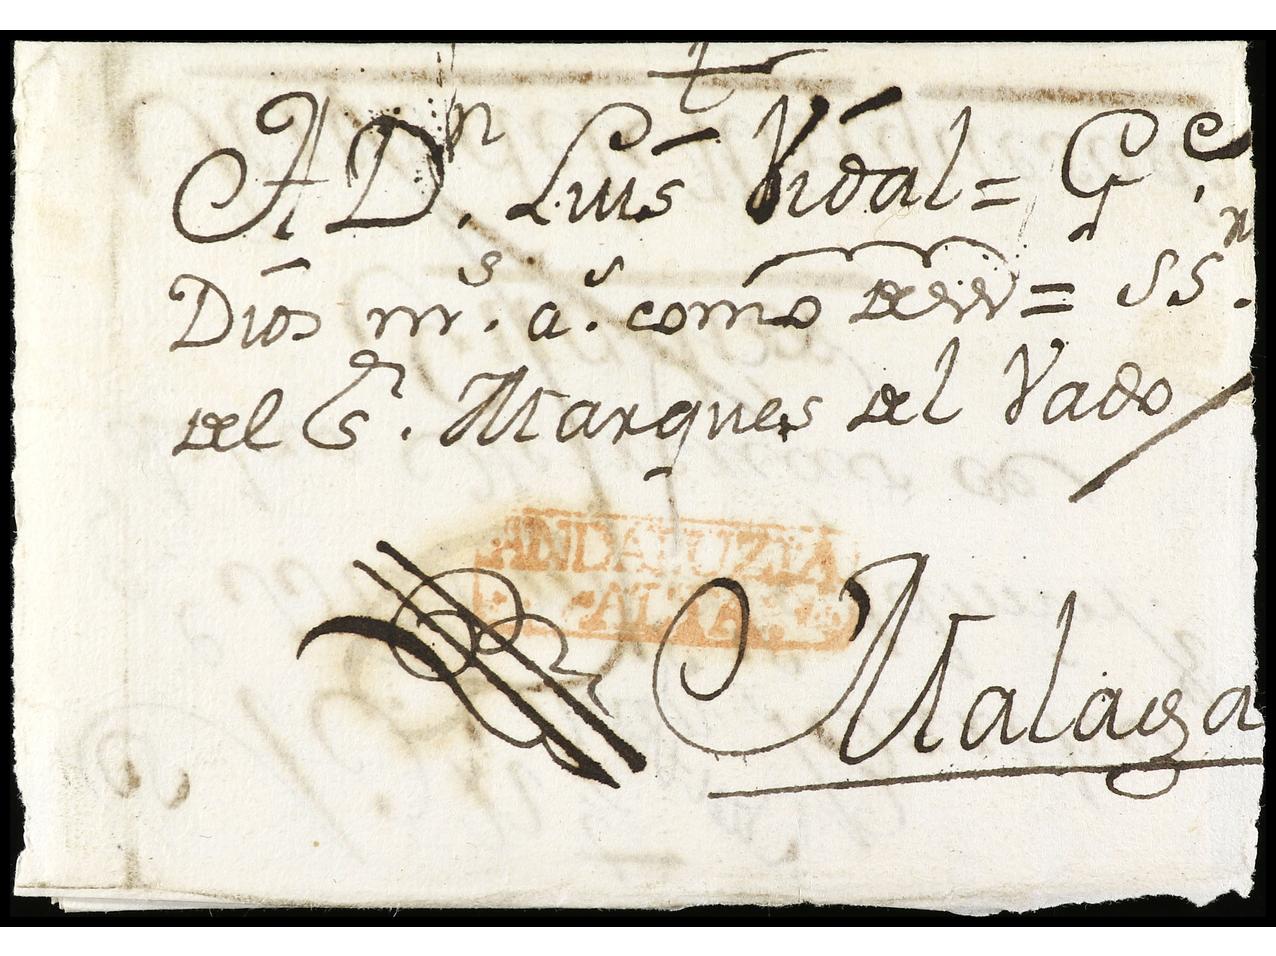 A Dn. Luis Vidal = Ge.
Dios ms. as. como deseo = SSn.
del Sr. Marques del Vado
ANDALUZIA
ALTA
Malaga